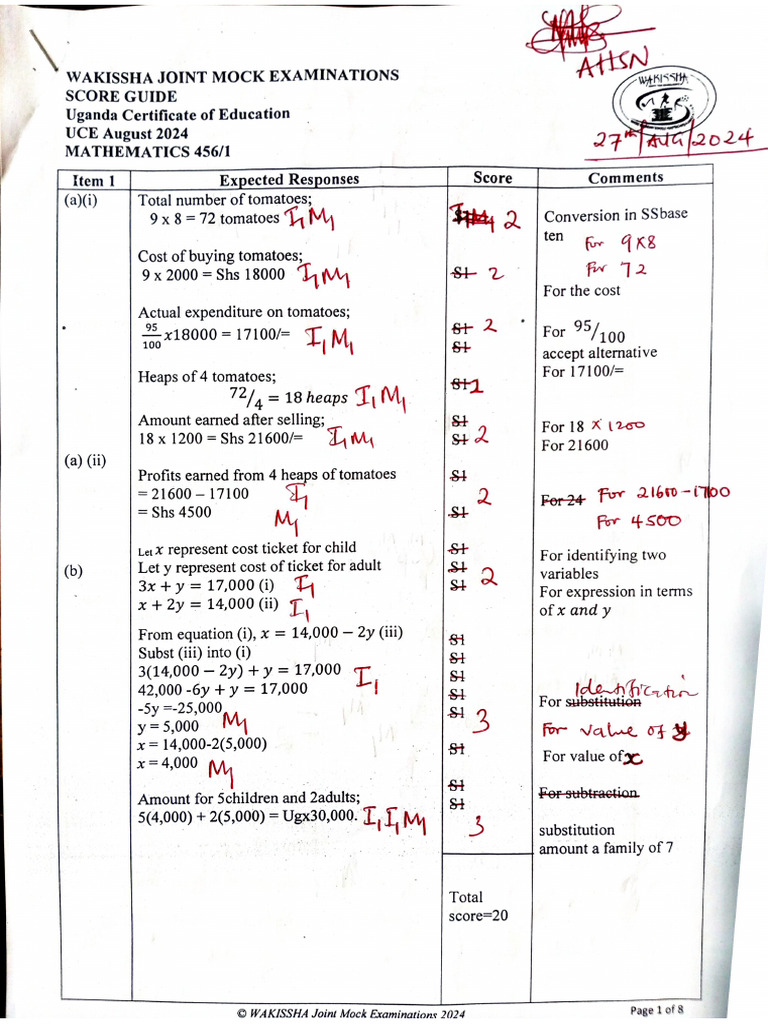 AHSN
WAKISSHA
27th/AUG/2024
WAKISSHA JOINT MOCK EXAMINATIONS
SCORE GUIDE
Uganda Certificate of Education
UCE August 2024
MATHEMATICS 456/1
Item 1 Expected Responses Score Comments
(a)(i) Total number of tomatoes;
9 x 8 = 72 tomatoes I1 M1 2 Conversion in SSbase
ten For 9x8
Cost of buying tomatoes;
9 x 2000 = Shs 18000 I1 M1 S1 2 For 72
For the cost
Actual expenditure on tomatoes;
95/100 x18000 = 17100/= I1 M1 S1 2 For 95/100
S1 accept alternative
Heaps of 4 tomatoes; For 17100/=
72/4 = 18 heaps I1 M1 S1 2
Amount earned after selling; S1 For 18 x 1200
18 x 1200 = Shs 21600/= I1 M1 S1 2 For 21600
(a) (ii)
Profits earned from 4 heaps of tomatoes S1
= 21600 – 17100 I1 2 For 24 For 21600-1700
= Shs 4500 M1 S1 For 4500
Let x represent cost ticket for child S1 For identifying two
(b) Let y represent cost of ticket for adult S1 2 variables
3x + y = 17,000 (i) I1 S1 For expression in terms
x + 2y = 14,000 (ii) I1 of x and y
From equation (i), x = 14,000 – 2y (iii) S1
Subst (iii) into (i) S1
3(14,000 – 2y) + y = 17,000 I1 S1
42,000 -6y + y = 17,000 S1 Identification
-5y =-25,000 S1 For substitution
y = 5,000 M1 3 For value of y
x = 14,000-2(5,000) S1 For value of x
x = 4,000 M1
S1 For subtraction
Amount for 5children and 2adults; S1
5(4,000) + 2(5,000) = Ugx30,000. I1 I1 M1 3 substitution
amount a family of 7
Total
score=20
© WAKISSHA Joint Mock Examinations 2024 Page 1 of 8